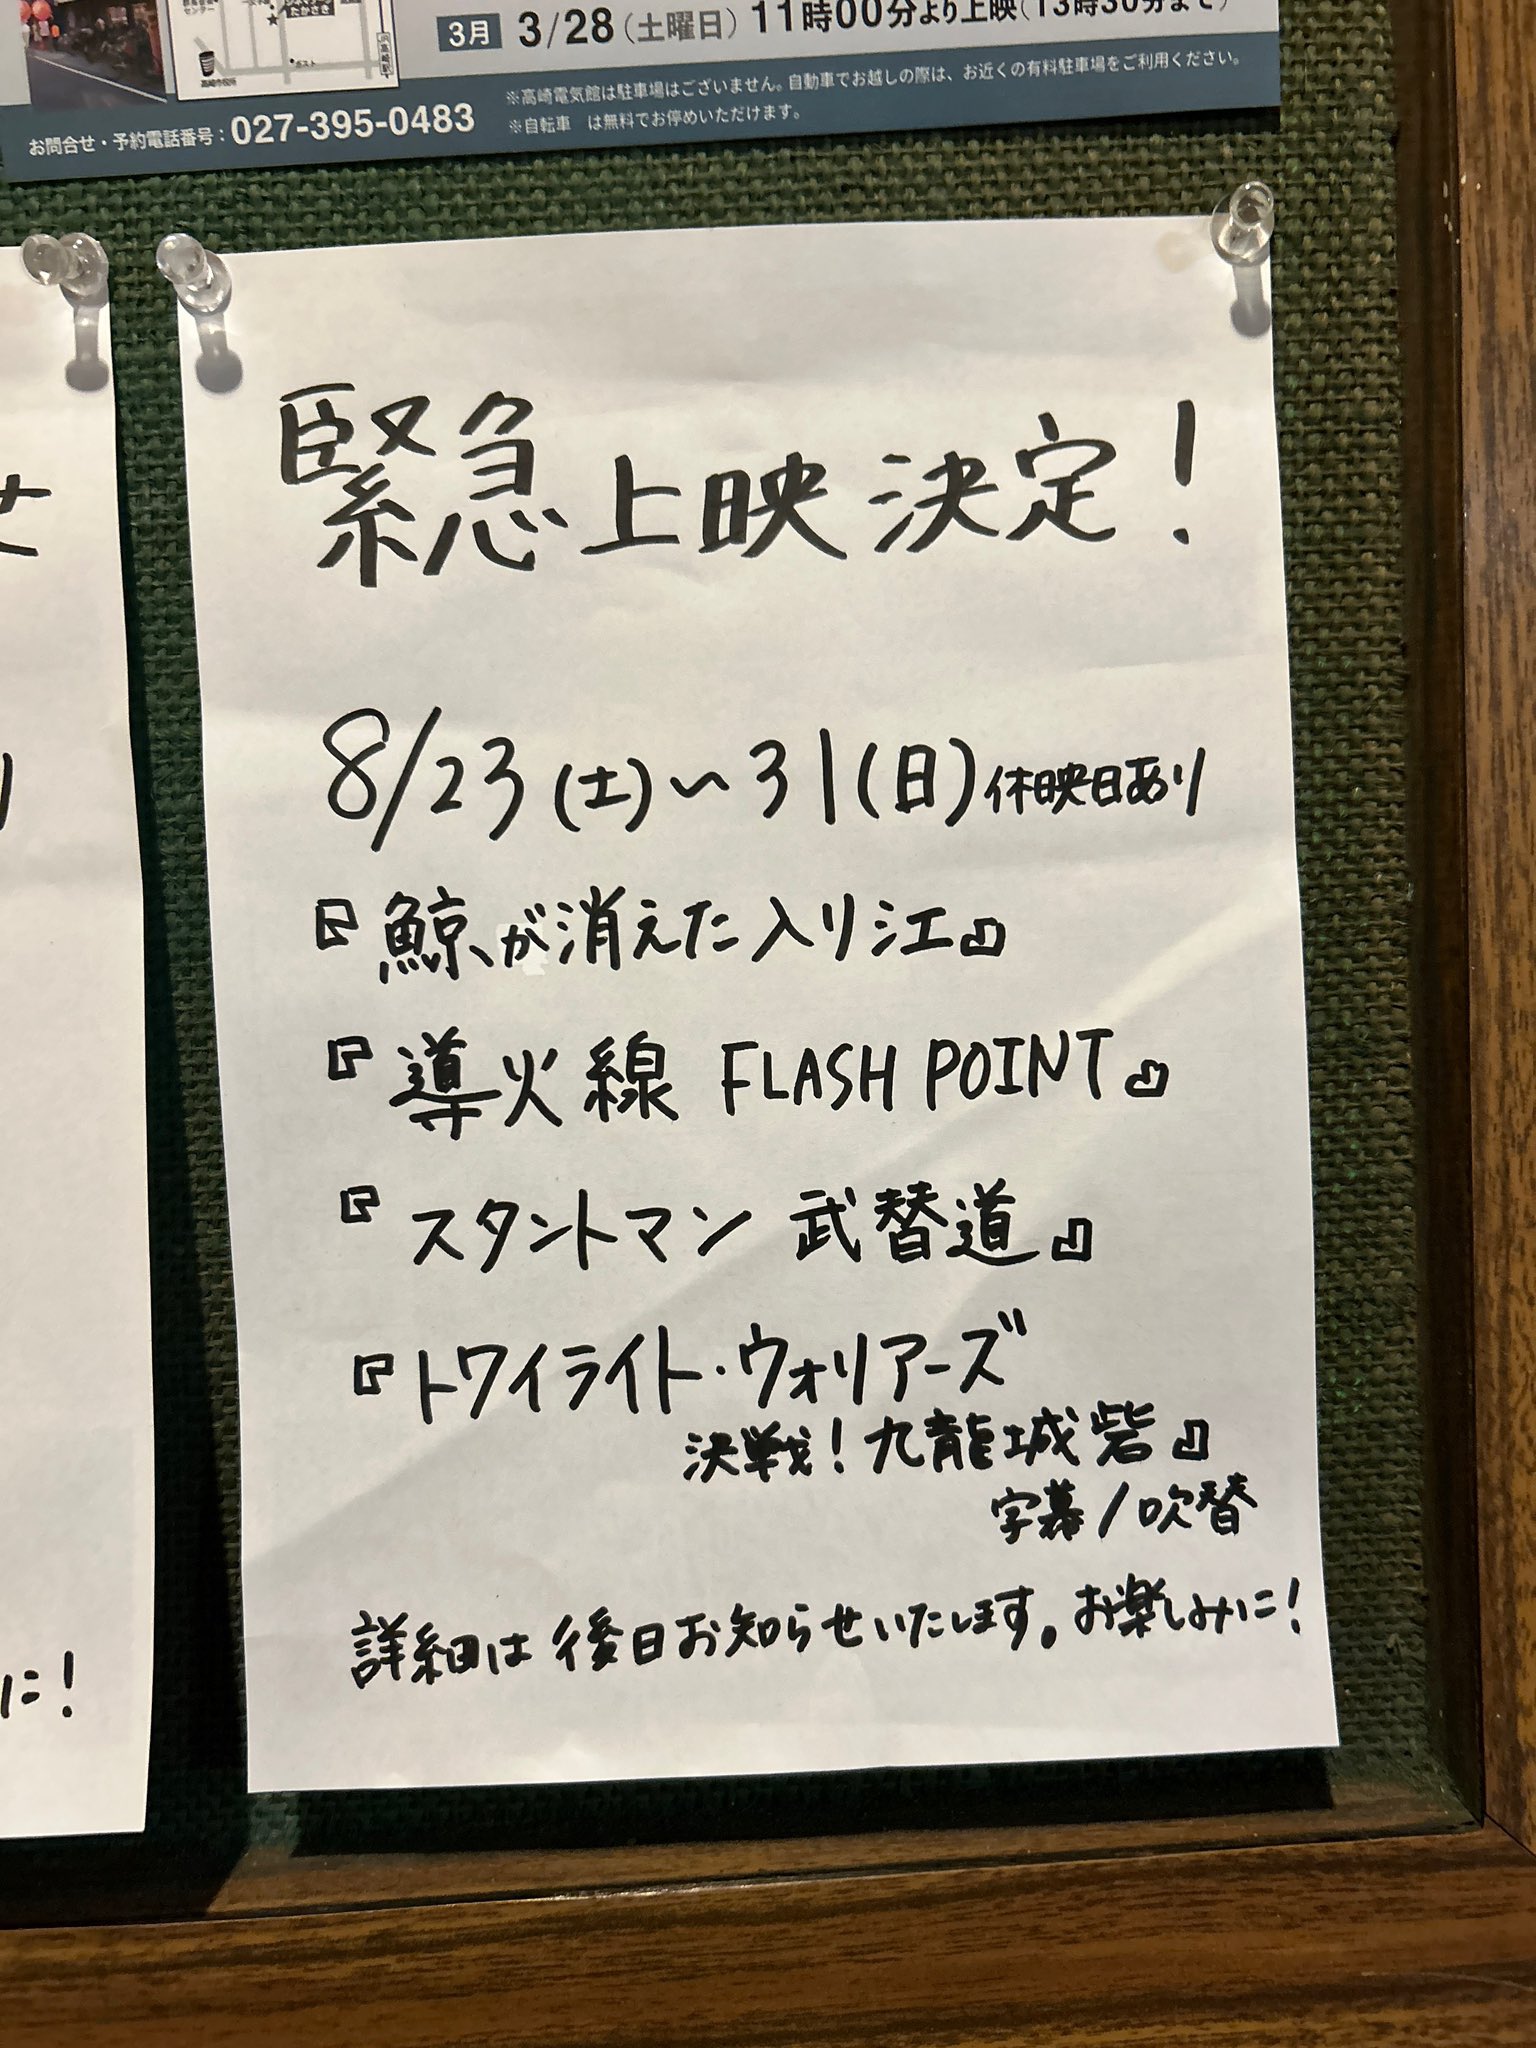 3月 3/28（土曜日）11時00分より上映（13時30分まで）
※高崎電気館は駐車場はございません。自動車でお越しの際は、お近くの有料駐車場をご利用ください。
お問合せ・予約電話番号：027-395-0483
※自転車　は無料でお停めいただけます。
緊急上映決定！
8/23(土)～31(日)休映日あり
『鯨が消えた入り江』
『導火線 FLASH POINT』
『スタントマン 武替道』
『トワイライト・ウォリアーズ
決戦！九龍城砦』
字幕/吹替
詳細は後日お知らせいたします。お楽しみに！
せ
に！